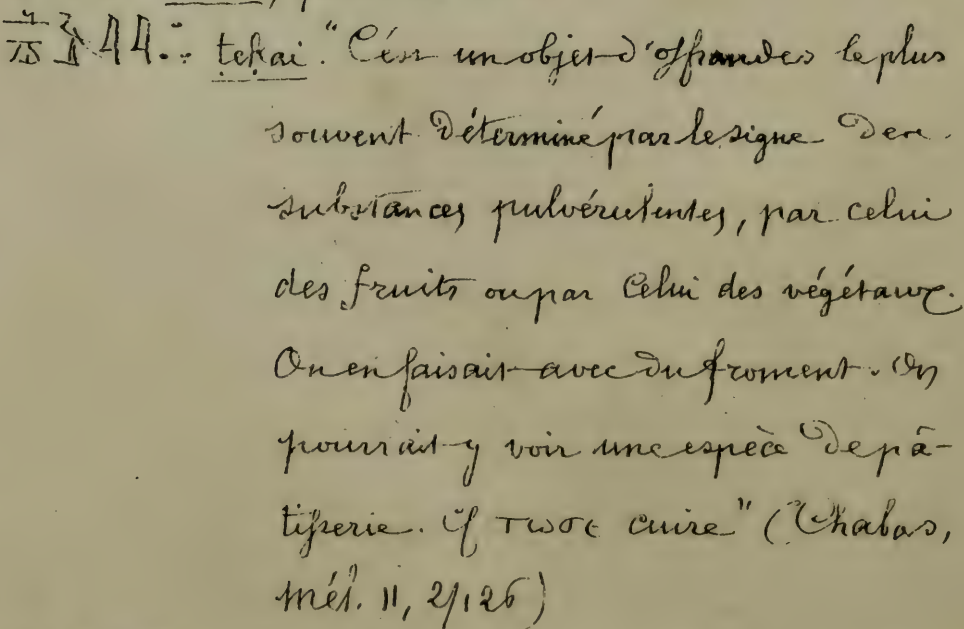 tekai. "C'est un objet d'offrandes le plus
souvent déterminé par le signe des
substances pulvérulentes, par celui
des fruits ou par celui des végétaux.
On en faisait avec du froment. On
pourrait y voir une espèce de pâ-
tisserie. cf ⲧⲱϭⲉ cuire" (Chabas,
Mél. II, 2/126)